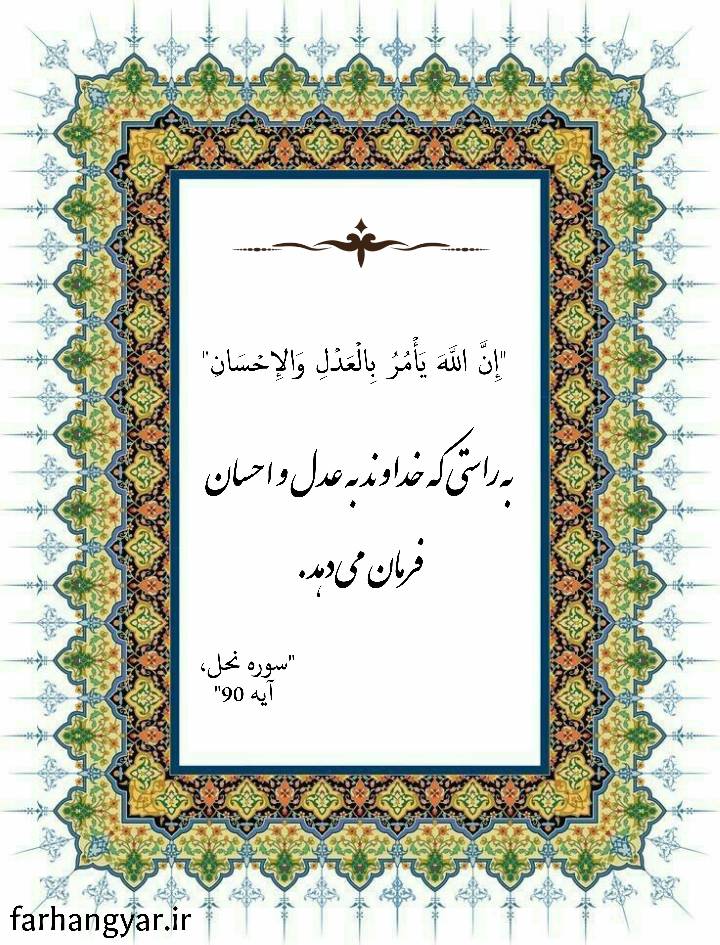 "إِنَّ اللَّهَ يَأْمُرُ بِالْعَدْلِ وَالإِحْسَانِ"
به راستی که خداوند به عدل و احسان
فرمان می‌دهد.
"سوره نحل،
آیه 90"
farhangyar.ir